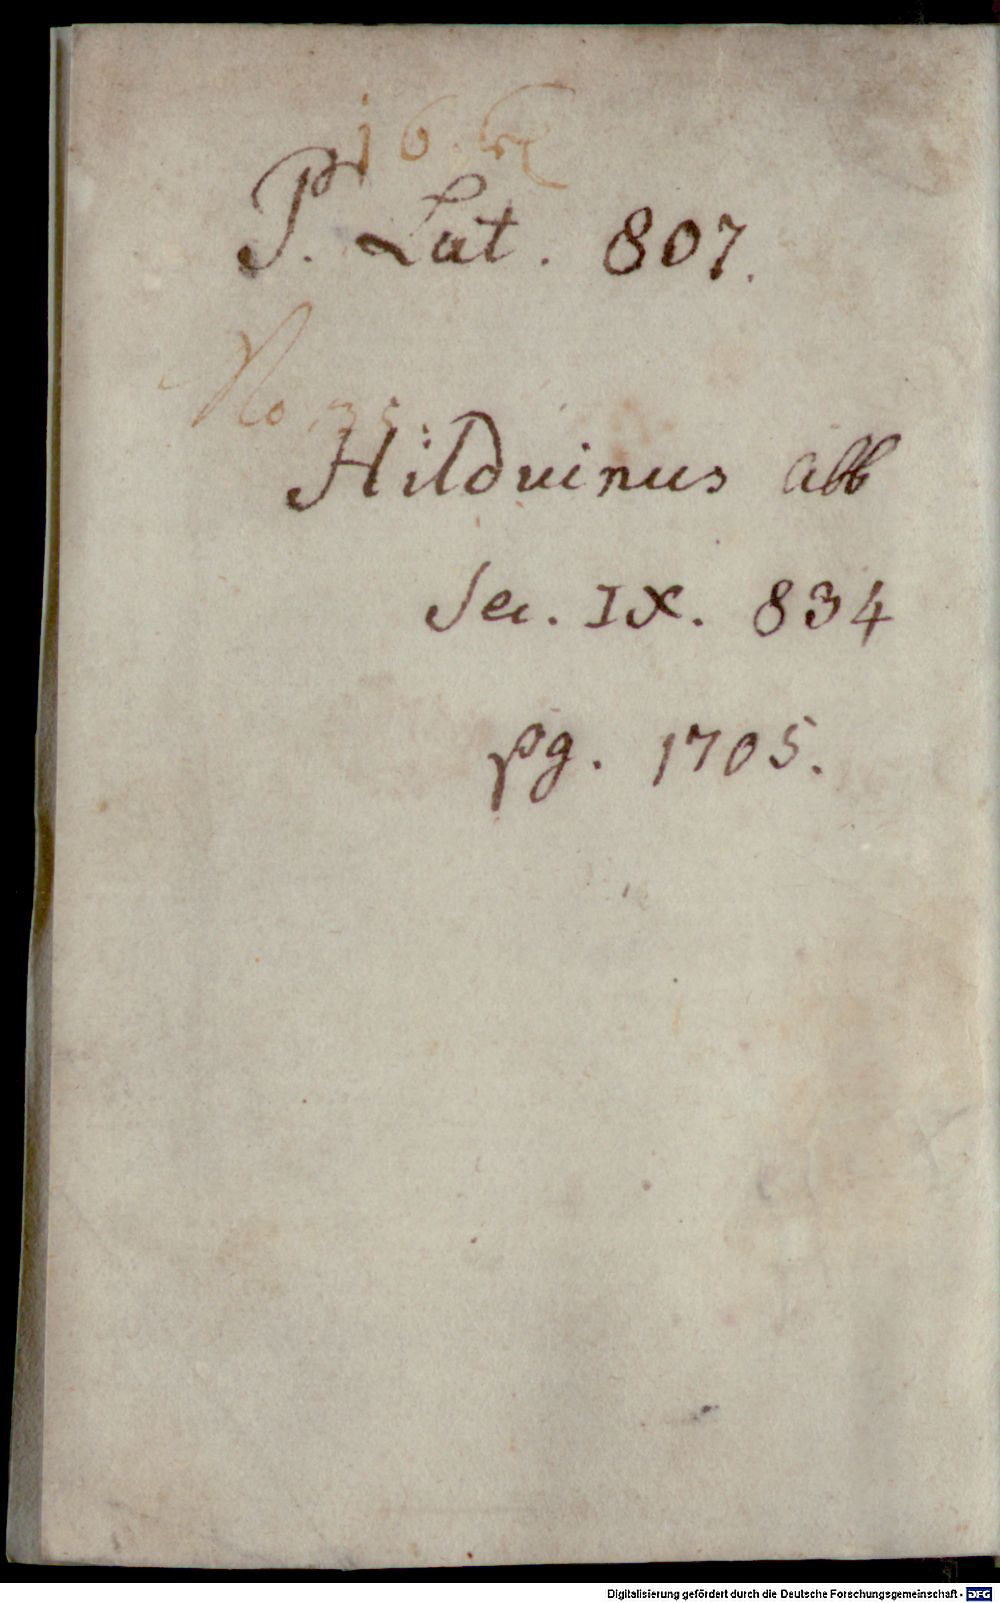 16
P. Lat. 807.
No 35
Hilduinus abb
Sec. IX. 834
pg. 1705.
Digitalisierung gefördert durch die Deutsche Forschungsgemeinschaft - DFG